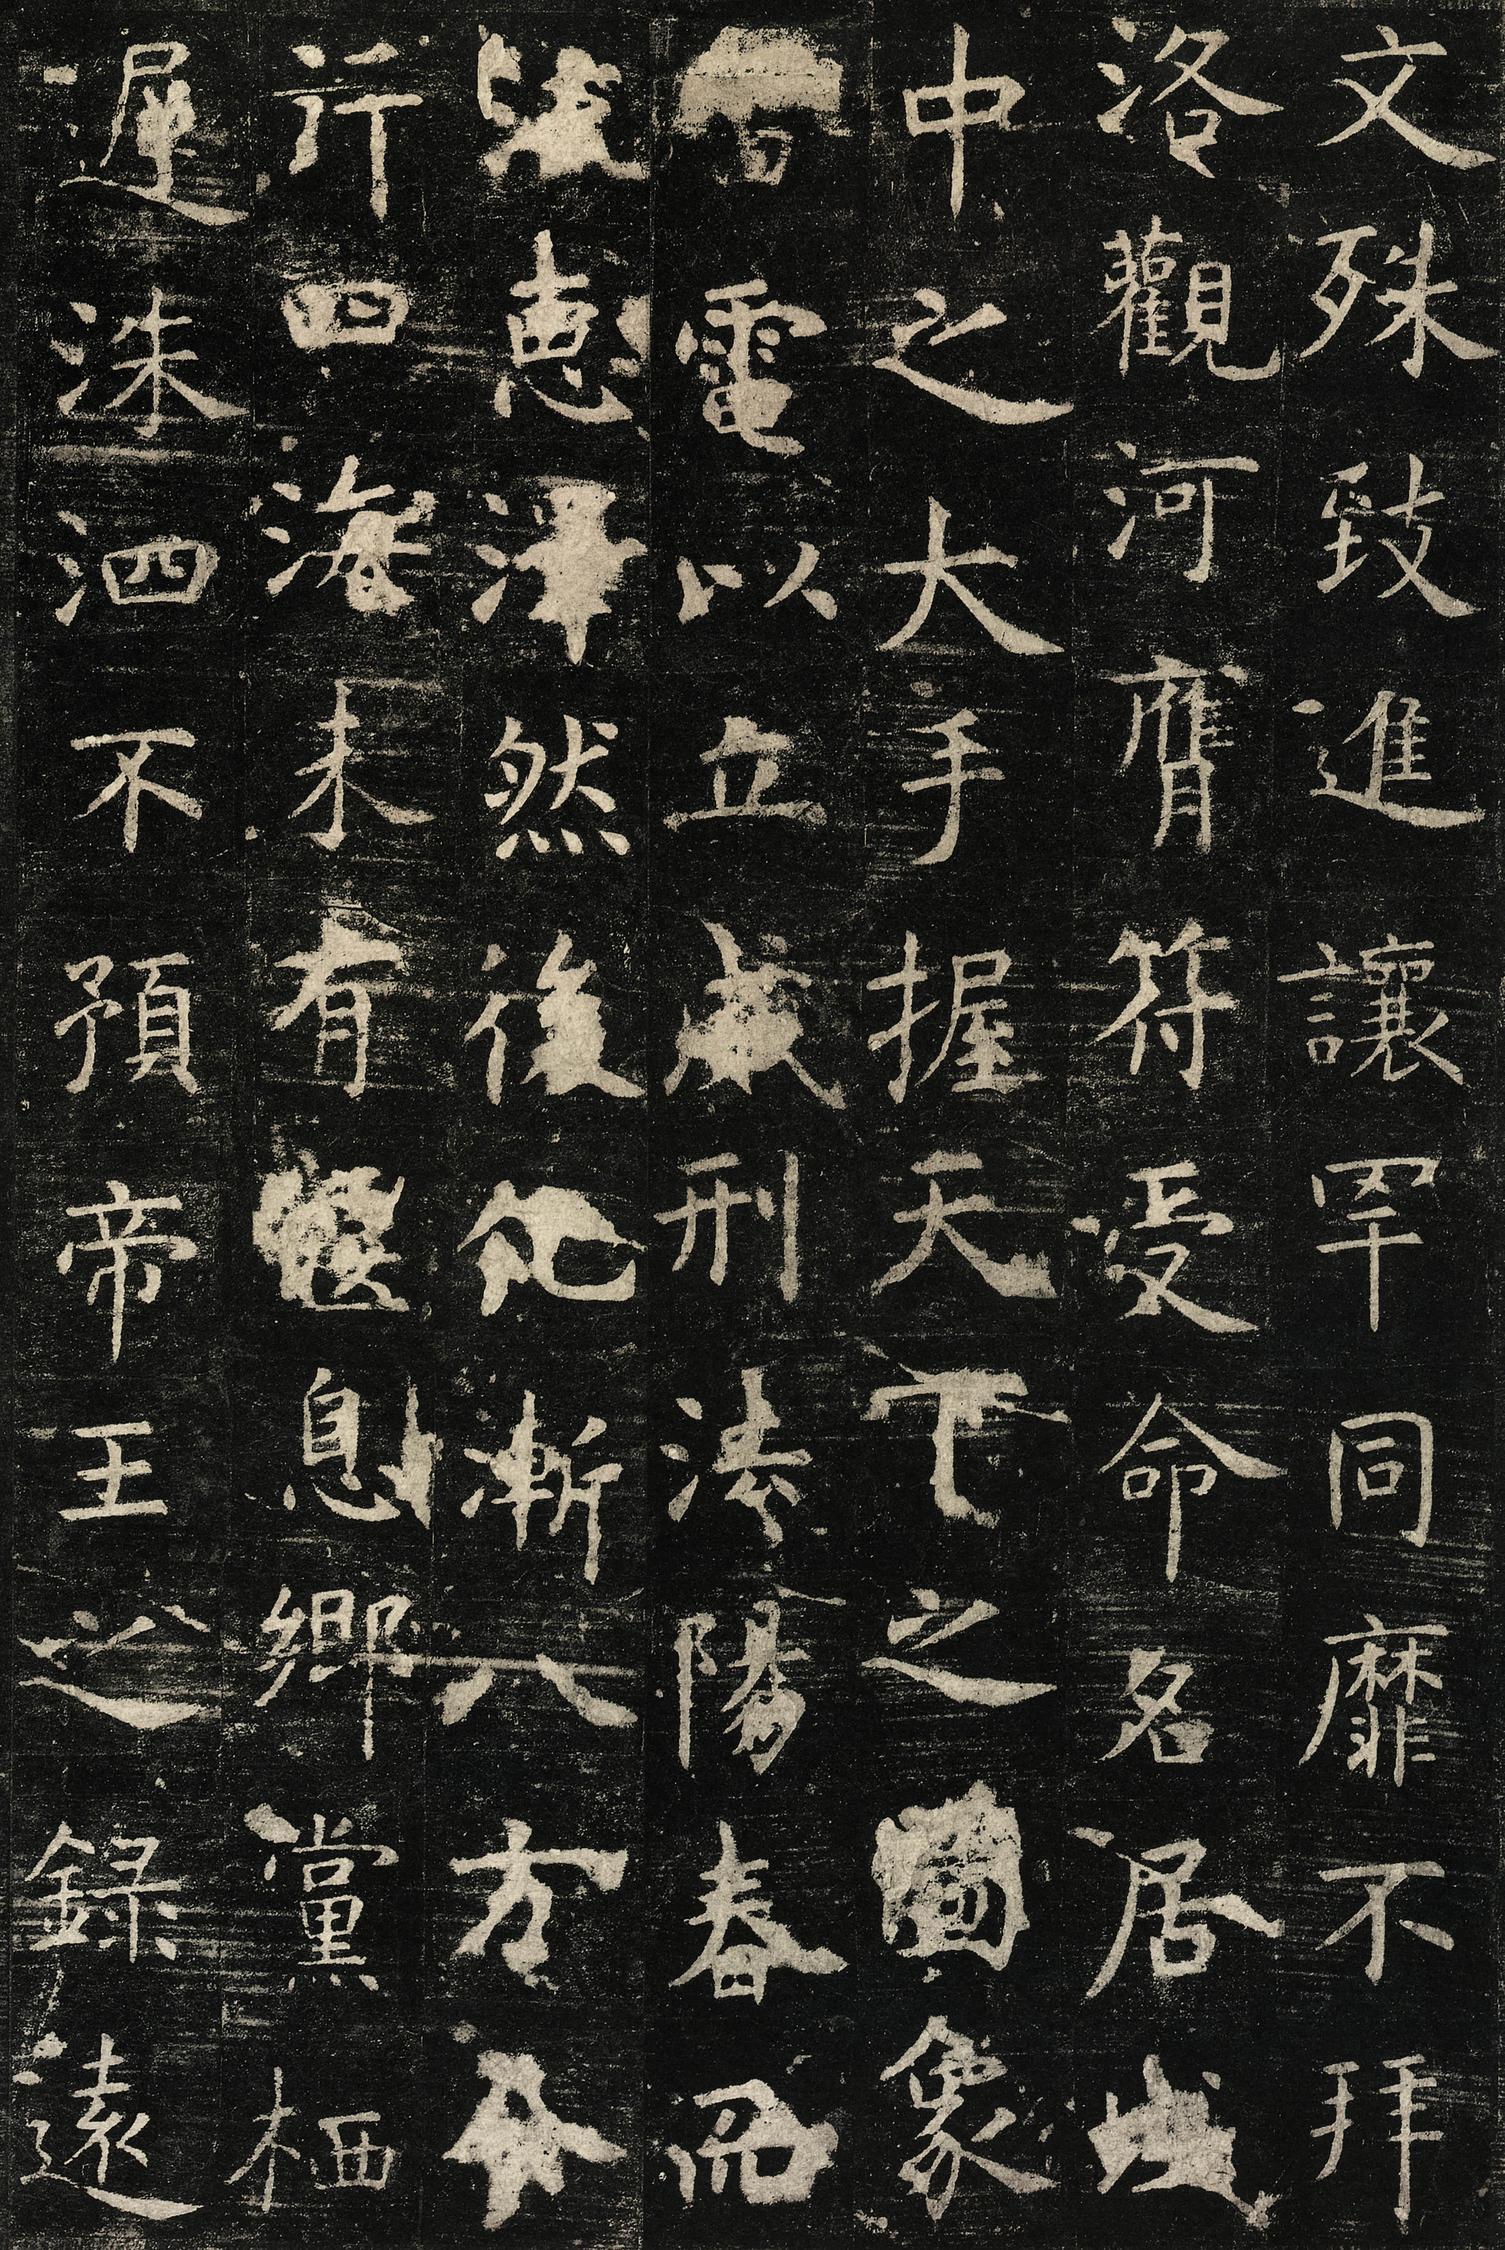 文殊致進讓罕同靡不拜
洛觀河膺符受命名居域
中之大手握天下之圖象
雷電以立威刑法陽春而
流惠澤然後化漸八方令
行四海未有偃息鄉黨栖
遲洙泗不預帝王之録遠